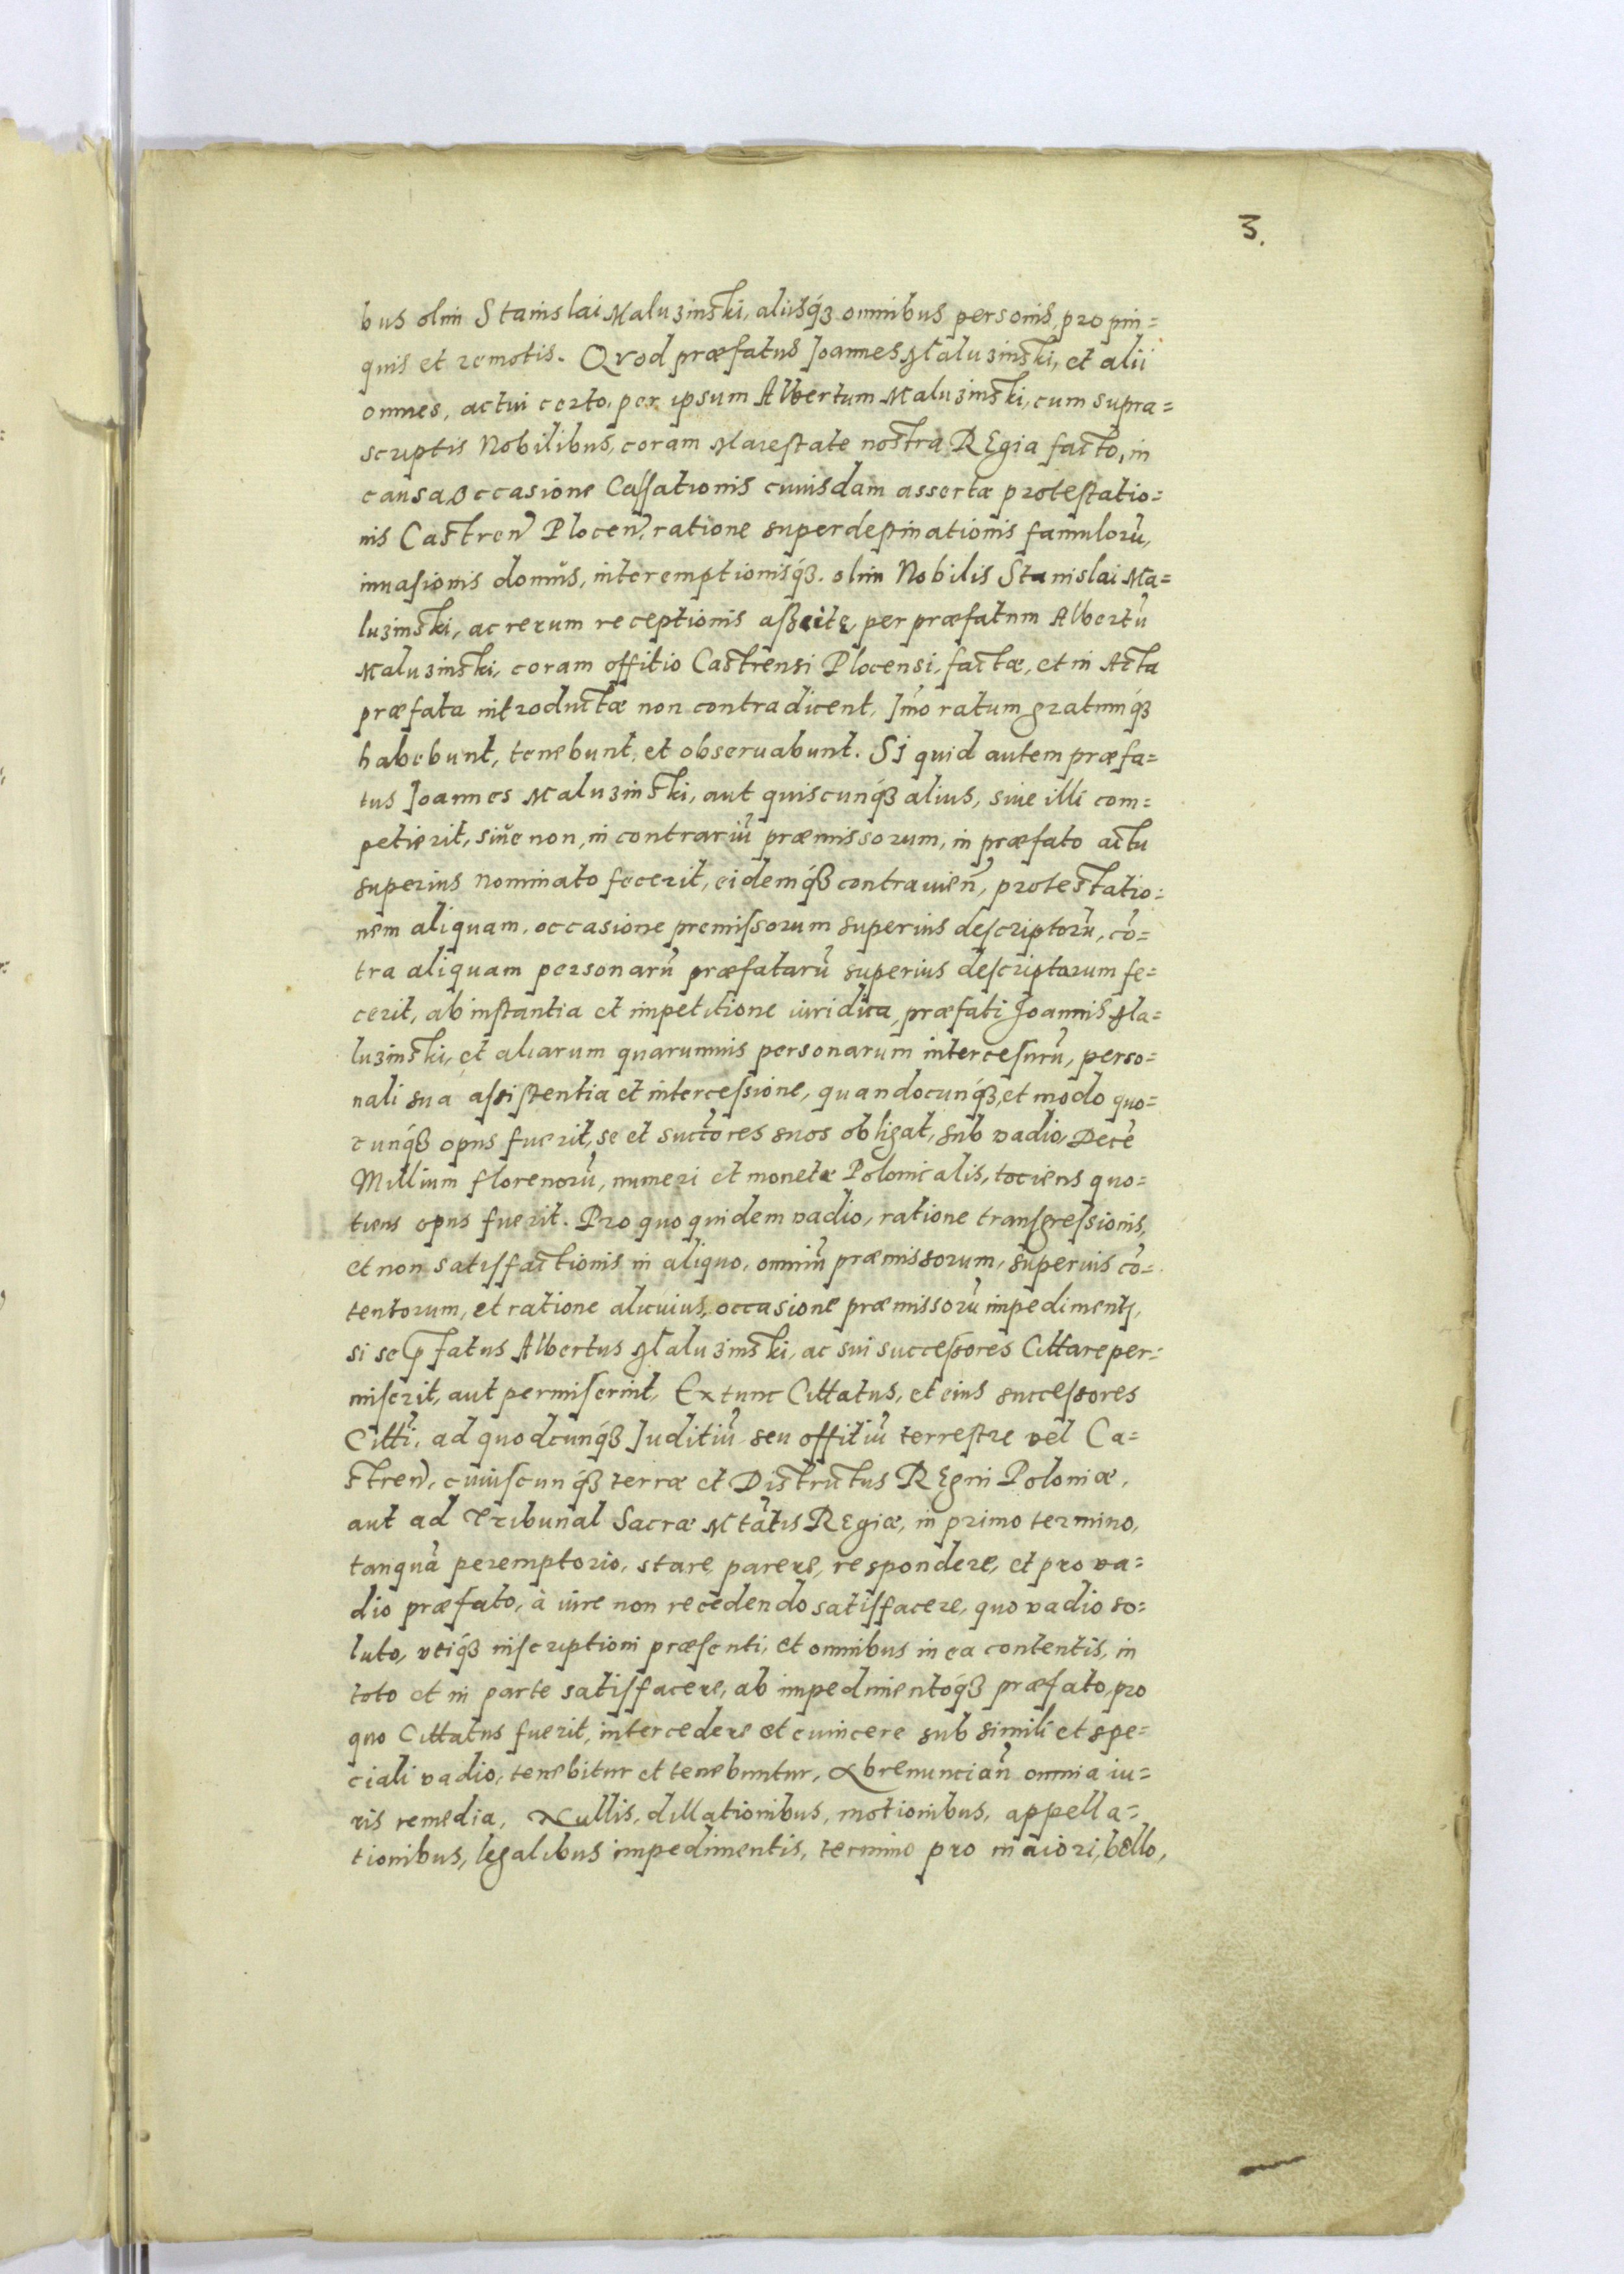 3.
bus olim Stanislai Maluzinski, aliisq́ꝫ omnibus personis, propin=
quis et remotis. Qvod præfatus Joannes Maluzinski, et alii
omnes, actui certo, per ipsum Albertum Maluzinski, cum supra=
scriptis Nobilibus, coram Maieſtate nostra REgia facto, in
causa, occasione Caſſationis cuiusdam assertæ proteſtatio=
nis Castren̄ Plocen̄, ratione superdeſtinationis famuloru᷑,
inuaſionis domus, interemptionisq́ꝫ olim Nobilis Stanislai Ma=
luzinski, ac rerum receptionis aſſertę per præfatum Albertu᷑
Maluzinski, coram offitio Castrensi Plocensi, factæ, et in Acta
præfata introductæ non contradicent, Jmó ratum gratumq́ꝫ
habebunt, tenebunt, et obseruabunt. SJ quid autem præfa=
tus Joannes Maluzinski, aut quiscunq́ꝫ alius, siue illi com=
petierit, siue non, in contrariu᷑ præmissorum, in præfato actu
superius nominato fecerit, eidemq́ꝫ contrauien̄, protestatio=
nem aliquam, occasione premiſsorum superius deſcriptoru᷑, co᷑=
tra aliquam personaru᷑ præfataru᷑ superius deſcriptarum fe=
cerit, ab inſtantia et impetitione iuridica, præfati Joannis Ma=
luzinski, et aliarum quarumuis personarum interceſuru᷑, perso=
nali sua aſsiſtentia et interceſsione, quandocunq́ꝫ, et modo quo=
cunq́ꝫ opus fuerit, se et suctores suos obligat, sub vadio, Dece᷑
Millium florenoru᷑, numeri et monetæ Polonicalis, tociens quo=
tiens opus fuerit. Pro quo quidem vadio, ratione tranſgreſsionis,
et non satiſfactionis in aliquo, omniu᷑ præmissorum, superius co᷑=
tentorum, et ratione alicuius, occasione præmissoru᷑ impedimentj,
si sep̱fatus Albertus Maluzinski, ac sui succeſsores Cittare per=
miserit, aut permiſerint, Extunc Cittatus, et eius succeſsores
Citti᷑, ad quodcunq́ꝫ Juditiu᷑ seu offitiu᷑ terreſtre vel Ca=
stren̄, cuiuſcunq́ꝫ terræ et Districtus REgni Poloniæ,
aut ad Tribunal Sacræ Mta᷑tis REgiæ, in primo termino,
tanqua᷑ peremptorio, stare, parere, respondere, et pro va=
dio præfato, à iure non recedendo satiſfacere, quo vadio so=
luto, vtiq́ꝫ inſcriptioni præſenti, et omnibus in ea contentis, in
toto et in parte satiſfacere, ab impedimentoq́ꝫ præfato, pro
quo Cittatus fuerit, intercedere et euincere sub simili et spe=
ciali vadio, tenebitur et tenebuntur, Abrenuncian̄ omnia iu=
ris remedia, Nullis, dillationibus, motionibus, appella=
tionibus, legalibus impedimentis, termino pro maiori, bello,